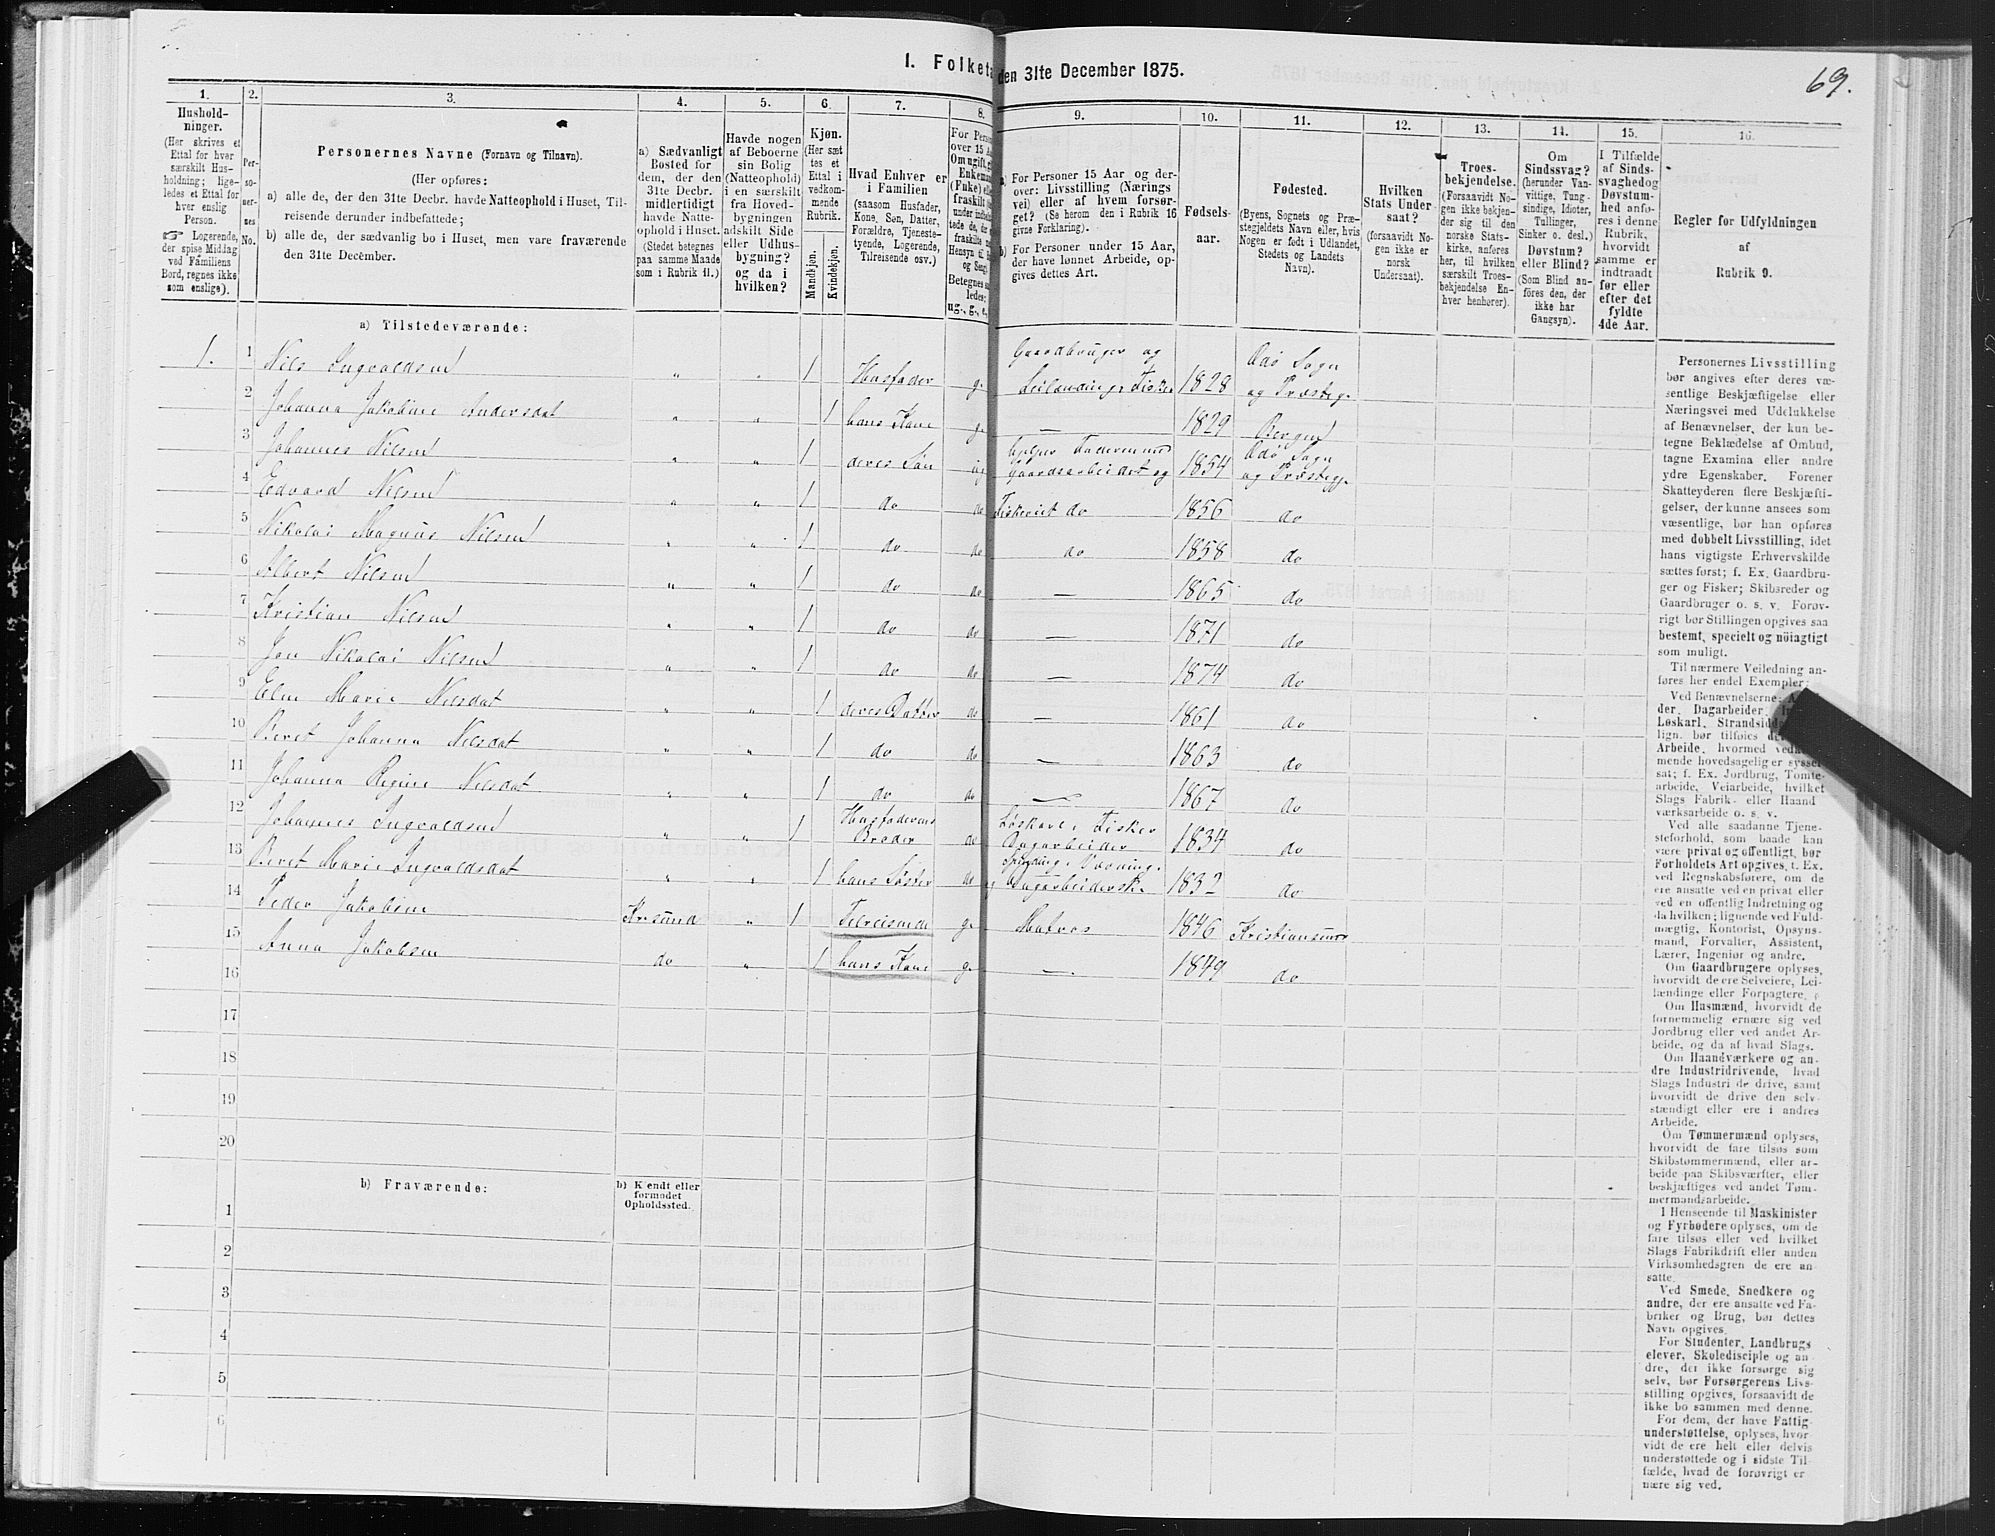 1. Folketæ
den 31te December 1875.
69.
1.
Hushold-
ninger.
(Her skrives et
Ettal for hver
særskilt Hus-
holdning; lige-
ledes et Ettal for
hver enslig
Person.
☞ Logerende,
der spise Middag
ved Familiens
Bord, regnes ikke
som enslige).
2.
Per-
so-
ner-
nes
No.
3.
Personernes Navne (Fornavn og Tilnavn).
(Her opføres:
a) alle de, der den 31te Decbr. havde Natteophold i Huset, Til-
reisende derunder indbefattede;
b) alle de, der sædvanlig bo i Huset, men vare fraværende
den 31te December.
4.
a) Sædvanligt
Bosted for
dem, der den
31te Decbr.
midlertidigt
havde Natte-
ophold i Huset.
(Stedet betegnes
paa samme Maade
som i Rubrik 11.)
5.
Havde nogen
af Beboerne
sin Bolig
(Natteophold)
i en særskilt
fra Hoved-
bygningen
adskilt Side
eller Udhus-
bygning?
og da i
hvilken?
6.
Kjøn.
(Her sæt
tes et
Ettal i
vedkom-
mende
Rubrik.
Mandkjøn.
Kvindekjøn.
7.
Hvad Enhver er
i Familien
(saasom Husfader,
Kone, Søn, Datter,
Forældre, Tjeneste-
tyende, Logerende,
Tilreisende osv.)
8.
For Person
over 15 Aa
Om ugift, g
Enkeman
(Fuke) elle
fraskilt
9.
a) For Personer 15 Aar og der-
over: Livsstilling (Nærings
vei) eller af hvem forsør-
get? (Se herom den i Rubrik 16
givne Forklaring).
b) For Personer under 15 Aar,
der have lønnet Arbeide, op-
gives dettes Art.
10.
Fødsels-
aar.
11.
Fødested.
(Byens, Sognets og Præ-
stegjeldets Navn eller, hvis
Nogen er født i Udlandet,
Stedets og Landets
Navn).
12.
Hvilken
Stats Under
saat?
(forsaavidt No-
gen ikke er
norsk
Undersaat).
13.
Troes-
bekjendelse.
(Forsaavidt No-
gen ikke bekjen-
der sig til den
norske Stats-
kirke, anføres
her, til hvilken
særskilt Troes-
bekjendelse En-
hver henhører).
14.
Om
Sindssvag?
(herunder Van-
vittige, Tung-
sindige, Idioter,
Tullinger,
Sinker o. desl.)
Døvstum?
eller Blind?
(Som Blind an-
føres den, der
ikke har
Gangsyn).
15.
I Tilfælde
af Sinds-
svaghed og
Døvstum-
hed anfø-
res i denne
Rubrik,
hvorvidt
samme er
indtraadt
før eller
efter det
fyldte
4de Aar.
16.
Regler for Udfyldningen
af
Rubrik 9.
a) Tilstedeværende:
1. 1 Nils Ingvaldsen " " 1 Husfader g. Gaardbruger og Leilænding, Fisker 1828 Edø Sogn og Præsteg.
2 Johanna Jakobine Andersdat " " 1 hans Kone g. — 1829 Bergen
3 Johannes Nilsen " " 1 deres Søn ug hjelper Faderen med Gaardsarbeidet og 1854 Edø Sogn og Præstegj.
4 Edvard Nilsen " " 1 do do Fiskeriet do 1856 do
5 Nikolai Magnus Nilsen " " 1 do do do 1858 do
6 Albert Nilsen " " 1 do do — 1865 do
7 Kristian Nilsen " " 1 do do — 1871 do
8 Jon Nikolai Nilsen " " 1 do do — 1874 do
9 Elen Marie Nilsdat " " 1 deres Datter do — 1861 do
10 Beret Johanna Nilsdat " " 1 do do — 1863 do
11 Johanna Regine Nilsdat " " 1 do do — 1867 do
12 Johannes Ingvaldsen " " 1 Husfaderens Broder do Løskarl, Fisker Dagarbeider 1834 do
13 Beret Marie Ingvaldsdat " " 1 hans Søster do Spinding, Vævning, og Dagarbeiderske 1832 do
14 Peder Jakobsen Kr.sund " 1 Tilreisende g. Matros 1846 Kristiansund
15 Anna Jakobsen do " 1 hans Kone g. — 1849 do
16
17
18
19
20
b) Fraværende:
b) Kjendt eller
formodet
Opholdssted.
1
2
3
4
5
6
Personernes Livsstilling
bør angives efter deres væ-
sentlige Beskjæftigelse eller
Næringsvei med Udelukkelse
af Benævnelser, der kun be-
tegne Beklædelse af Ombud,
tagne Examina eller andre
ydre Egenskaber. Forener
Skatteyderen flere Beskjæfti-
gelser, der kunne ansees som
væsentlige, bør han opføres
med dobbelt Livsstilling, idet
hans vigtigste Erhvervskilde
sættes først; f. Ex. Gaardbru-
ger og Fisker; Skibsreder og
Gaardbruger o. s. v. Forøv-
rigt bør Stillingen opgives saa
bestemt, specielt og nöiagtigt
som muligt.
Til nærmere Veiledning an-
føres her endel Exempler:
Ved Benævnelserne:
der, Dagarbeider,
Løskarl, Strandsidd
lign. bør tilføies
Arbeide, hvormed
mende hovedsagelig er syssel
sat; f. Ex. Jordbrug, Tomte-
arbeide, Veiarbeide, hvilket
Slags Fabrik- eller Haand
værksarbeide o. s. v.
Ved alle saadanne Tjene-
steforhold, som baade kan
være privat og offentligt, bør
Forholdets Art opgives, t. Ex.
ved Regnskabsførere, om de
ere ansatte ved en privat eller
ved en offentlig Indretning og
da hvilken; lignende ved Fuld-
mægtig, Kontorist, Opsyns-
mand, Forvalter, Assistent,
Lærer, Ingeniør og andre.
Om Gaardbrugere oplyses,
hvorvidt de ere Selveiere, Lei-
lændinge eller Forpagtere.
Om Husmænd, hvorvidt de
fornemmelig ernære sig ved
Jordbrug eller ved andet Ar-
beide, og da af hvad Slags.
Om Haandværkere og an-
dre Industridrivende, hvad
Slags Industri de drive, samt
hvorvidt de drive den selv-
stændigt eller ere i andres
Arbeide.
Om Tømmermænd oplyses,
hvorvidt de fare tilsøs som
Skibstømmermænd, eller ar-
beide paa Skibsværfter, eller
beskjæftiges ved andet Tøm-
mermandsarbeide.
I Henseende til Maskinister
og Fyrbødere oplyses, om de
fare tilsøs eller ved hvilket
Slags Fabrikdrift eller anden
Virksomhedsgren de ere an-
satte.
Ved Smede, Snedkere og
andre, der ere ansatte ved Fa-
briker og Brug, bør dettes
Navn opgives.
For Studenter, Landbrugs
elever, Skoledisciple og an-
dre, der ikke forsørge sig
selv, bør Forsørgerens Livs-
stilling opgives, forsaavidt de
ikke bo sammen med denne.
For dem, der have Fattig-
understøttelse, oplyses, hvor-
vidt de ere helt eller delvis
understøttede og i sidste Til-
fælde, hvad de forøvrigt er
nære sig ved.